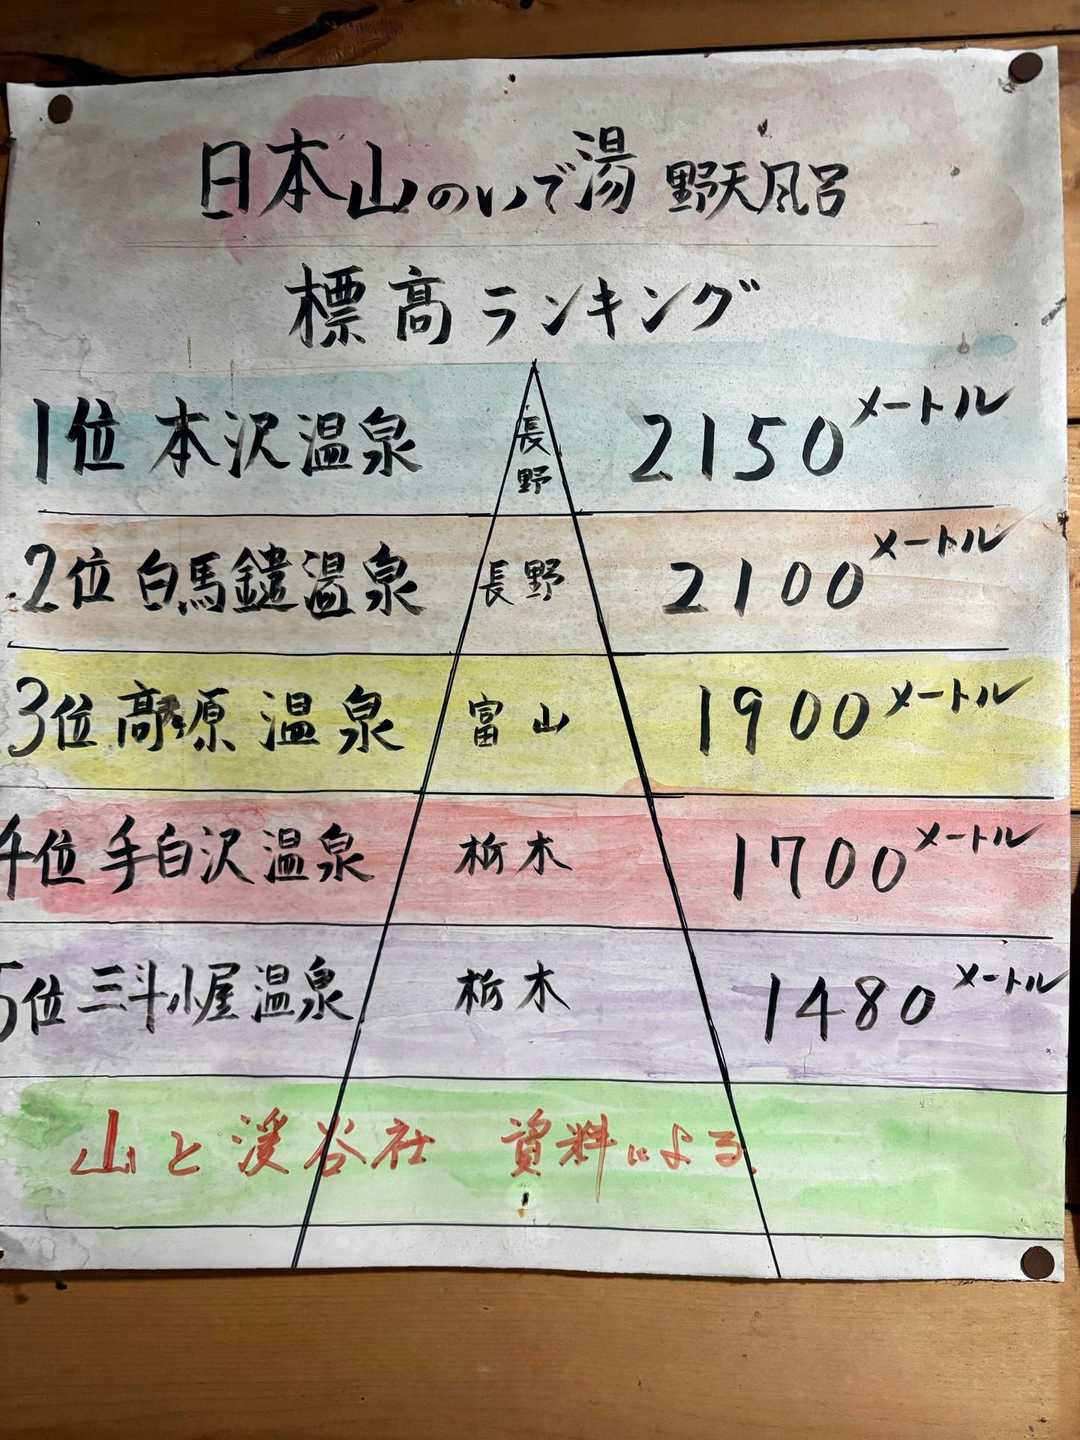 日本山のいで湯 野天風呂
標高ランキング
1位 本沢温泉 長野 2150メートル
2位 白馬鑓温泉 長野 2100メートル
3位 高原温泉 富山 1900メートル
4位 手白沢温泉 栃木 1700メートル
5位 三斗小屋温泉 栃木 1480メートル
山と渓谷社 資料による